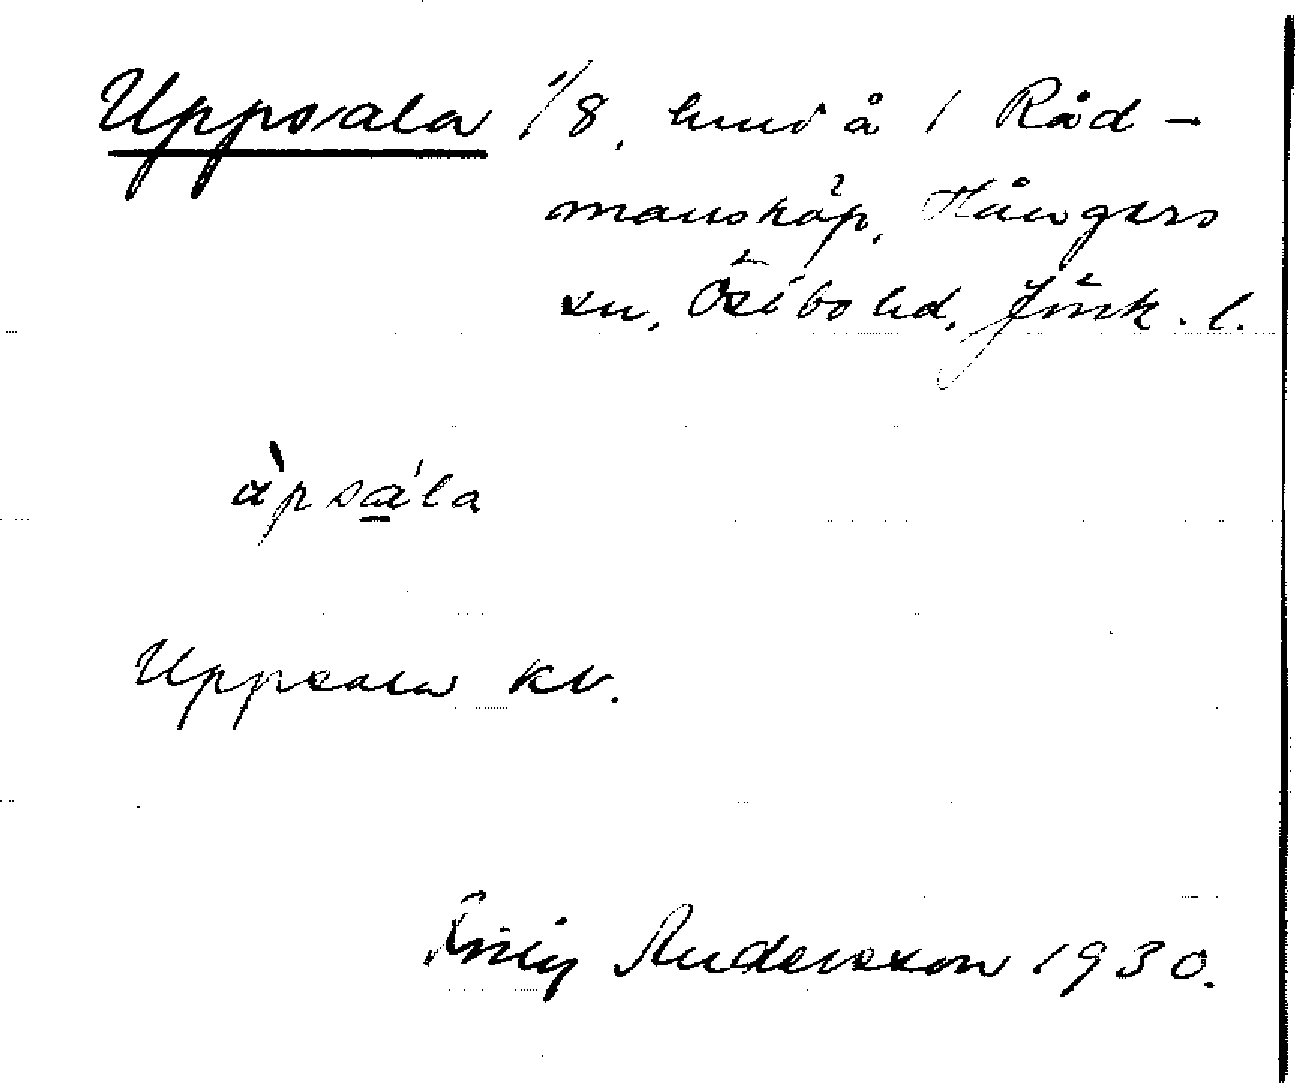 Uppsala 1/8, hmd å 1 Råd-
mansköp, Hångers
sn, Östbo hd, Jönk. l.
àpsa̱´la
Uppsala kv.
Andersson 1930.